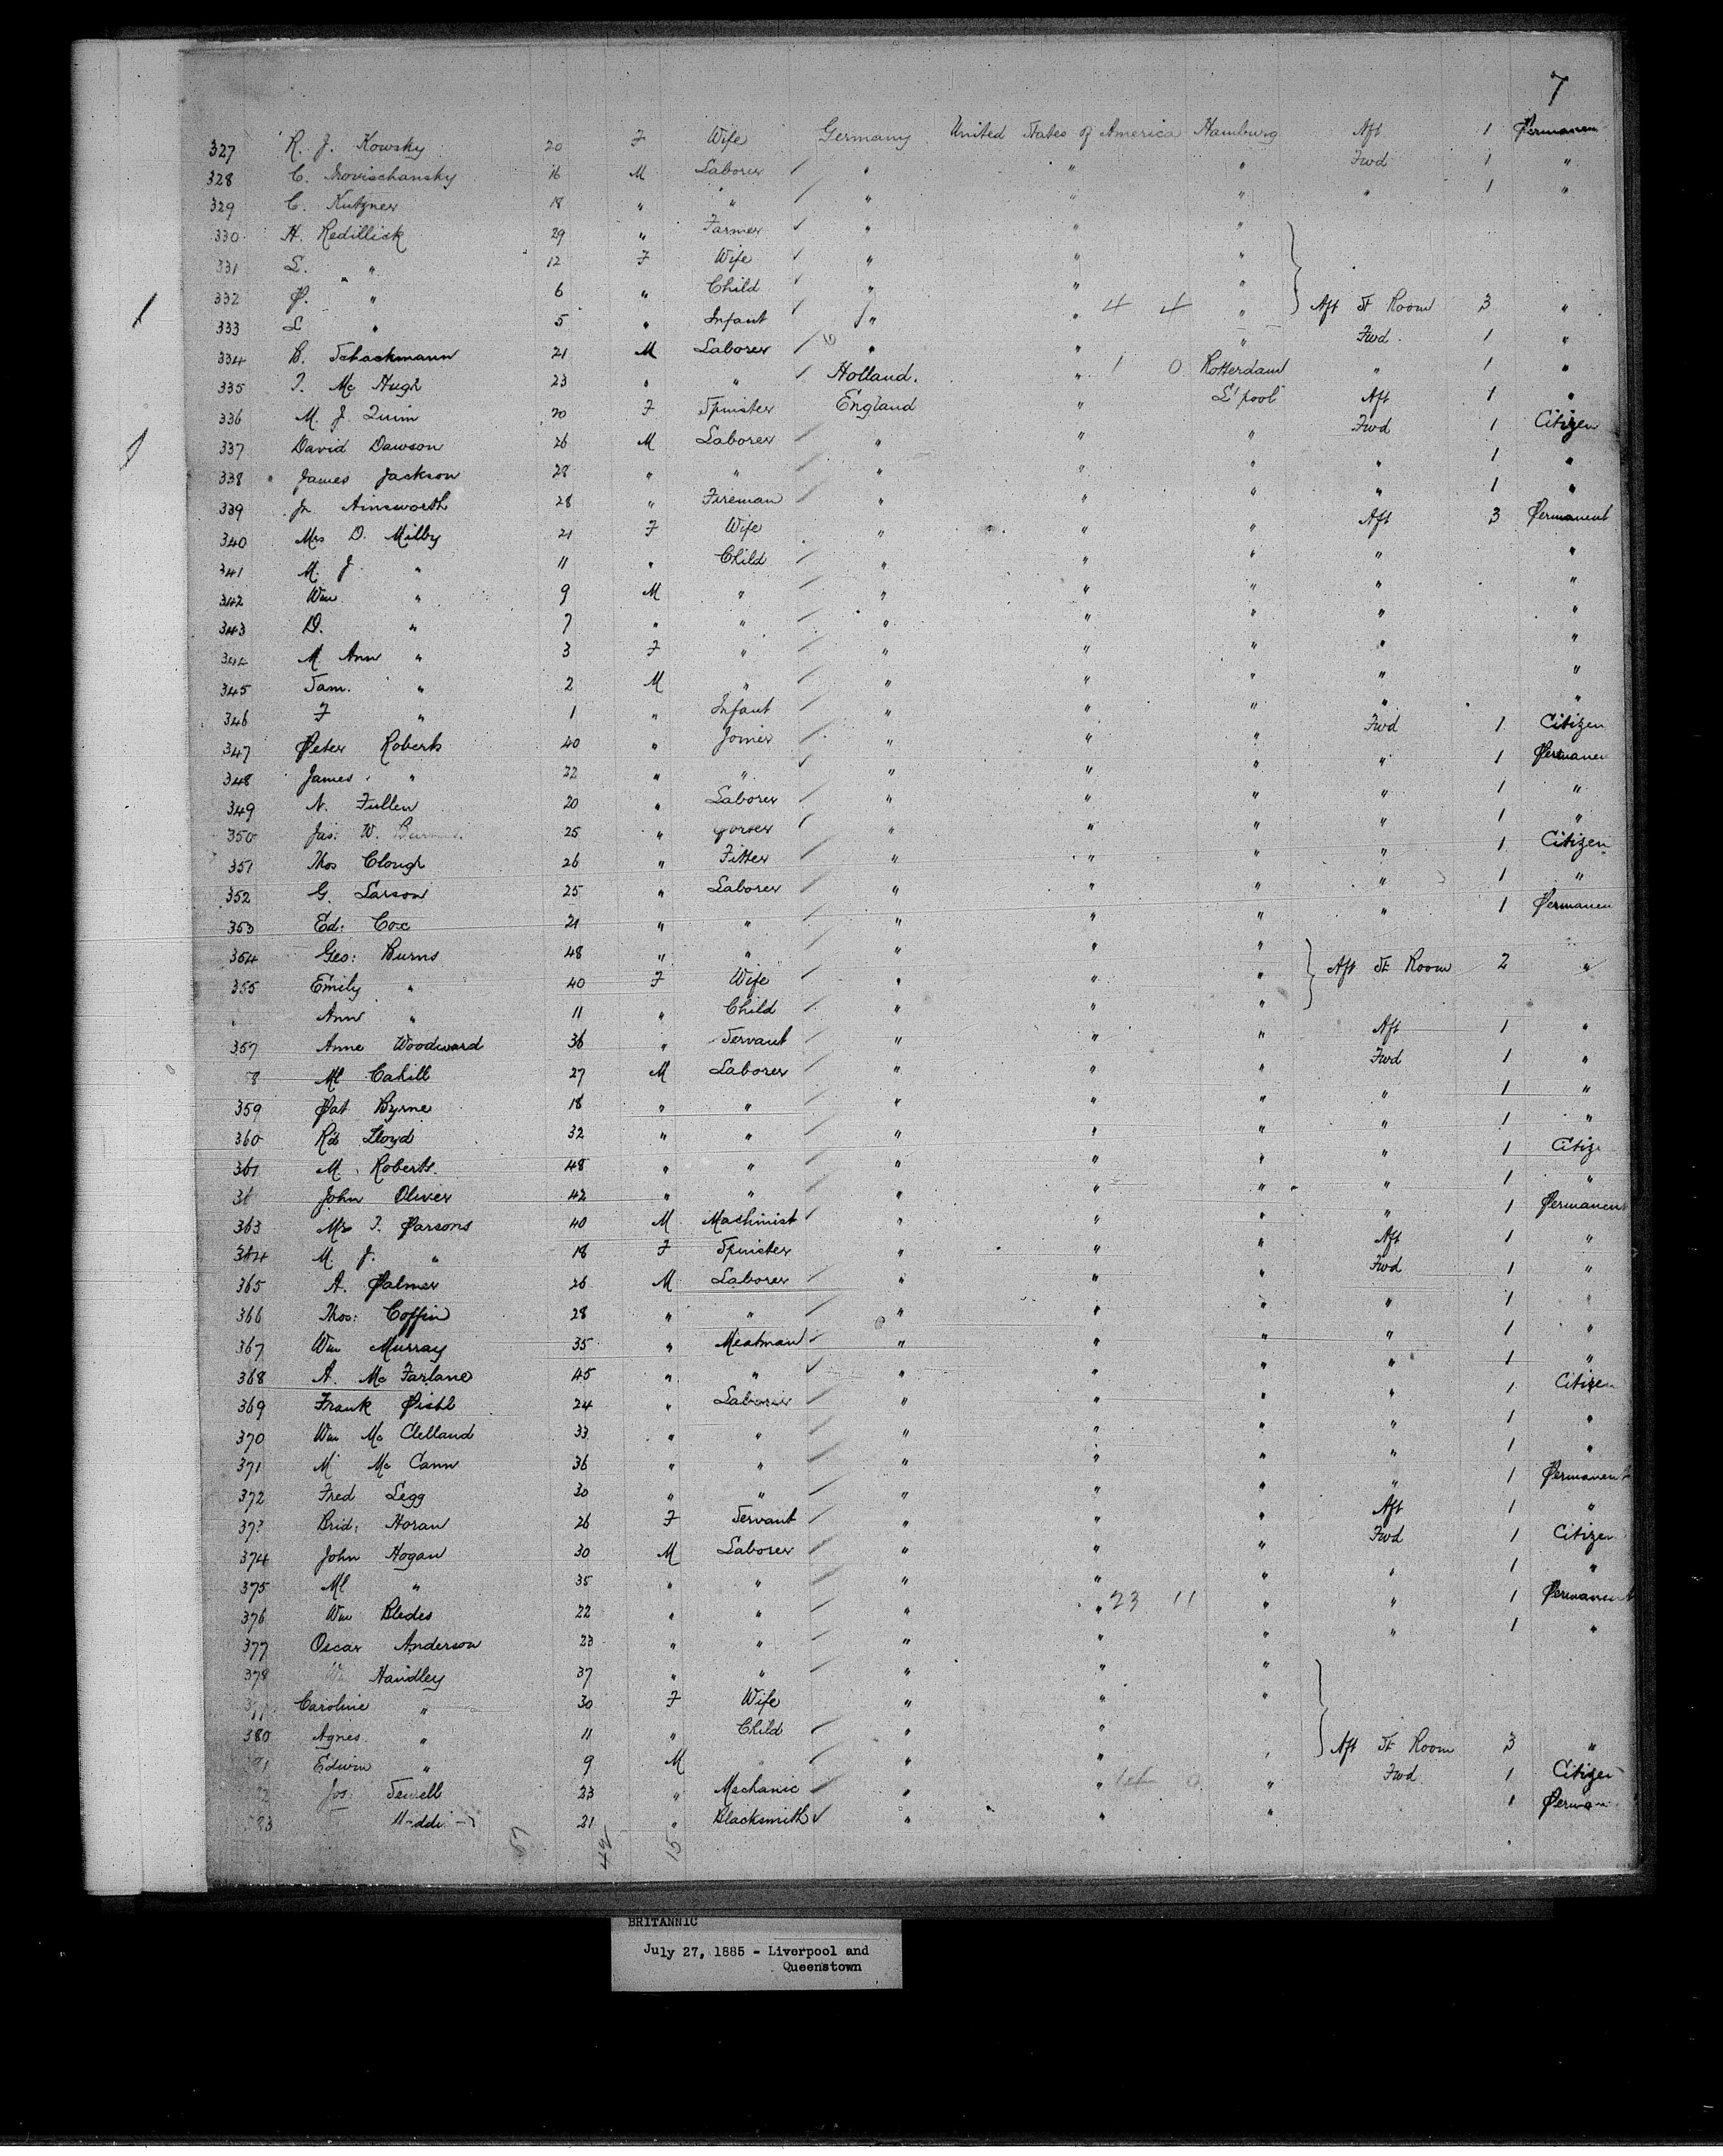 7
327 R. J. Kowsky 20 F Wife Germany United States of America Hamburg Aft 1 Permanen
328 C. 16 M Laborer " " " Fwd 1 "
329 C. Kutzner 18 " " " " " " 1 "
330 H. Redillick 29 " Farmer " " "
331 L. " 12 F Wife " " "
332 P. " 6 " Child " " " Aft St Room 3 "
333 L " 5 " Infant " " 4 4 "
334 B. Schackmann 21 M Laborer " " " Fwd 1 "
335 T. Mc Hugh 23 " " Holland. " 1 0 Rotterdam " 1 "
336 M. J. Quinn 20 F Spinster England " L'pool Aft 1 "
337 David Dawson 26 M Laborer " " " Fwd 1 Citizen
338 James Jackson 28 " " " " " " 1 "
339 Jn Ainsworth 28 " Fireman " " " " 1 "
340 Mrs D. Milby 21 F Wife " " " Aft 3 Permanent
341 M. J. " 11 " Child " " " " "
342 Wm " 9 M " " " " " "
343 D. " 7 " " " " " " "
344 M Ann " 3 F " " " " " "
345 Sam. " 2 M " " " " " "
346 F " 1 " Infant " " " " "
347 Peter Roberts 40 " Joiner " " " Fwd 1 Citizen
348 James " 22 " " " " " " 1 Permanen
349 N. Fullen 20 " Laborer " " " " 1 "
350 Jas: W. 25 " " " " " 1 "
351 Thos Clough 26 " Fitter " " " " 1 Citizen
352 G. Larson 25 " Laborer " " " " 1 "
353 Ed: Cox 21 " " " " " " 1 Permanen
354 Geo: Burns 48 " " " " "
355 Emily " 40 F Wife " " " Aft St Room 2 "
Ann " 11 " Child " " "
357 Anne Woodward 36 " Servant " " " Aft 1 "
8 Ml Cahill 27 M Laborer " " " Fwd 1 "
359 Pat Byrne 18 " " " " " " 1 "
360 Rd Lloyd 32 " " " " " " 1 "
361 M. Roberts 48 " " " " " " 1 Citize
36 John Oliver 42 " " " " " " 1 "
363 Mr T. Parsons 40 M Machinist " " " " 1 Permanent
364 M. J. " 18 F Spinster " " " Aft 1 "
365 A. Palmer 26 M Laborer " " " Fwd 1 "
366 Thos: Coffin 28 " " " " " " 1 "
367 Wm Murray 35 " Meatman " " " " 1 "
368 A. Mc Farlane 45 " " " " " " 1 "
369 Frank 24 " Laborer " " " " 1 Citizen
370 Wm Mc Clelland 33 " " " " " " 1 "
371 M Mc Cann 36 " " " " " " 1 "
372 Fred Legg 30 " " " " " " 1 Permanent
373 Brid: Horan 26 F Servant " " " Aft 1 "
374 John Hogan 30 M Laborer " " " Fwd 1 Citizen
375 Ml " 35 " " " " " " 1 "
376 Wm Bledes 22 " " " " 23 11 " " 1 Permanent
377 Oscar Anderson 23 " " " " " " 1 "
378 Wm Handley 37 " " " " "
Caroline " 30 F Wife " " "
380 Agnes " 11 " Child " "
Edwin " 9 M " " " " Aft St Room 3 "
Jos: Sewell 23 " Mechanic " " 0 " Fwd 1 Citizen
21 " Blacksmith " " " 1 Perman
BRITANNIC
July 27, 1885 - Liverpool and
Queenstown